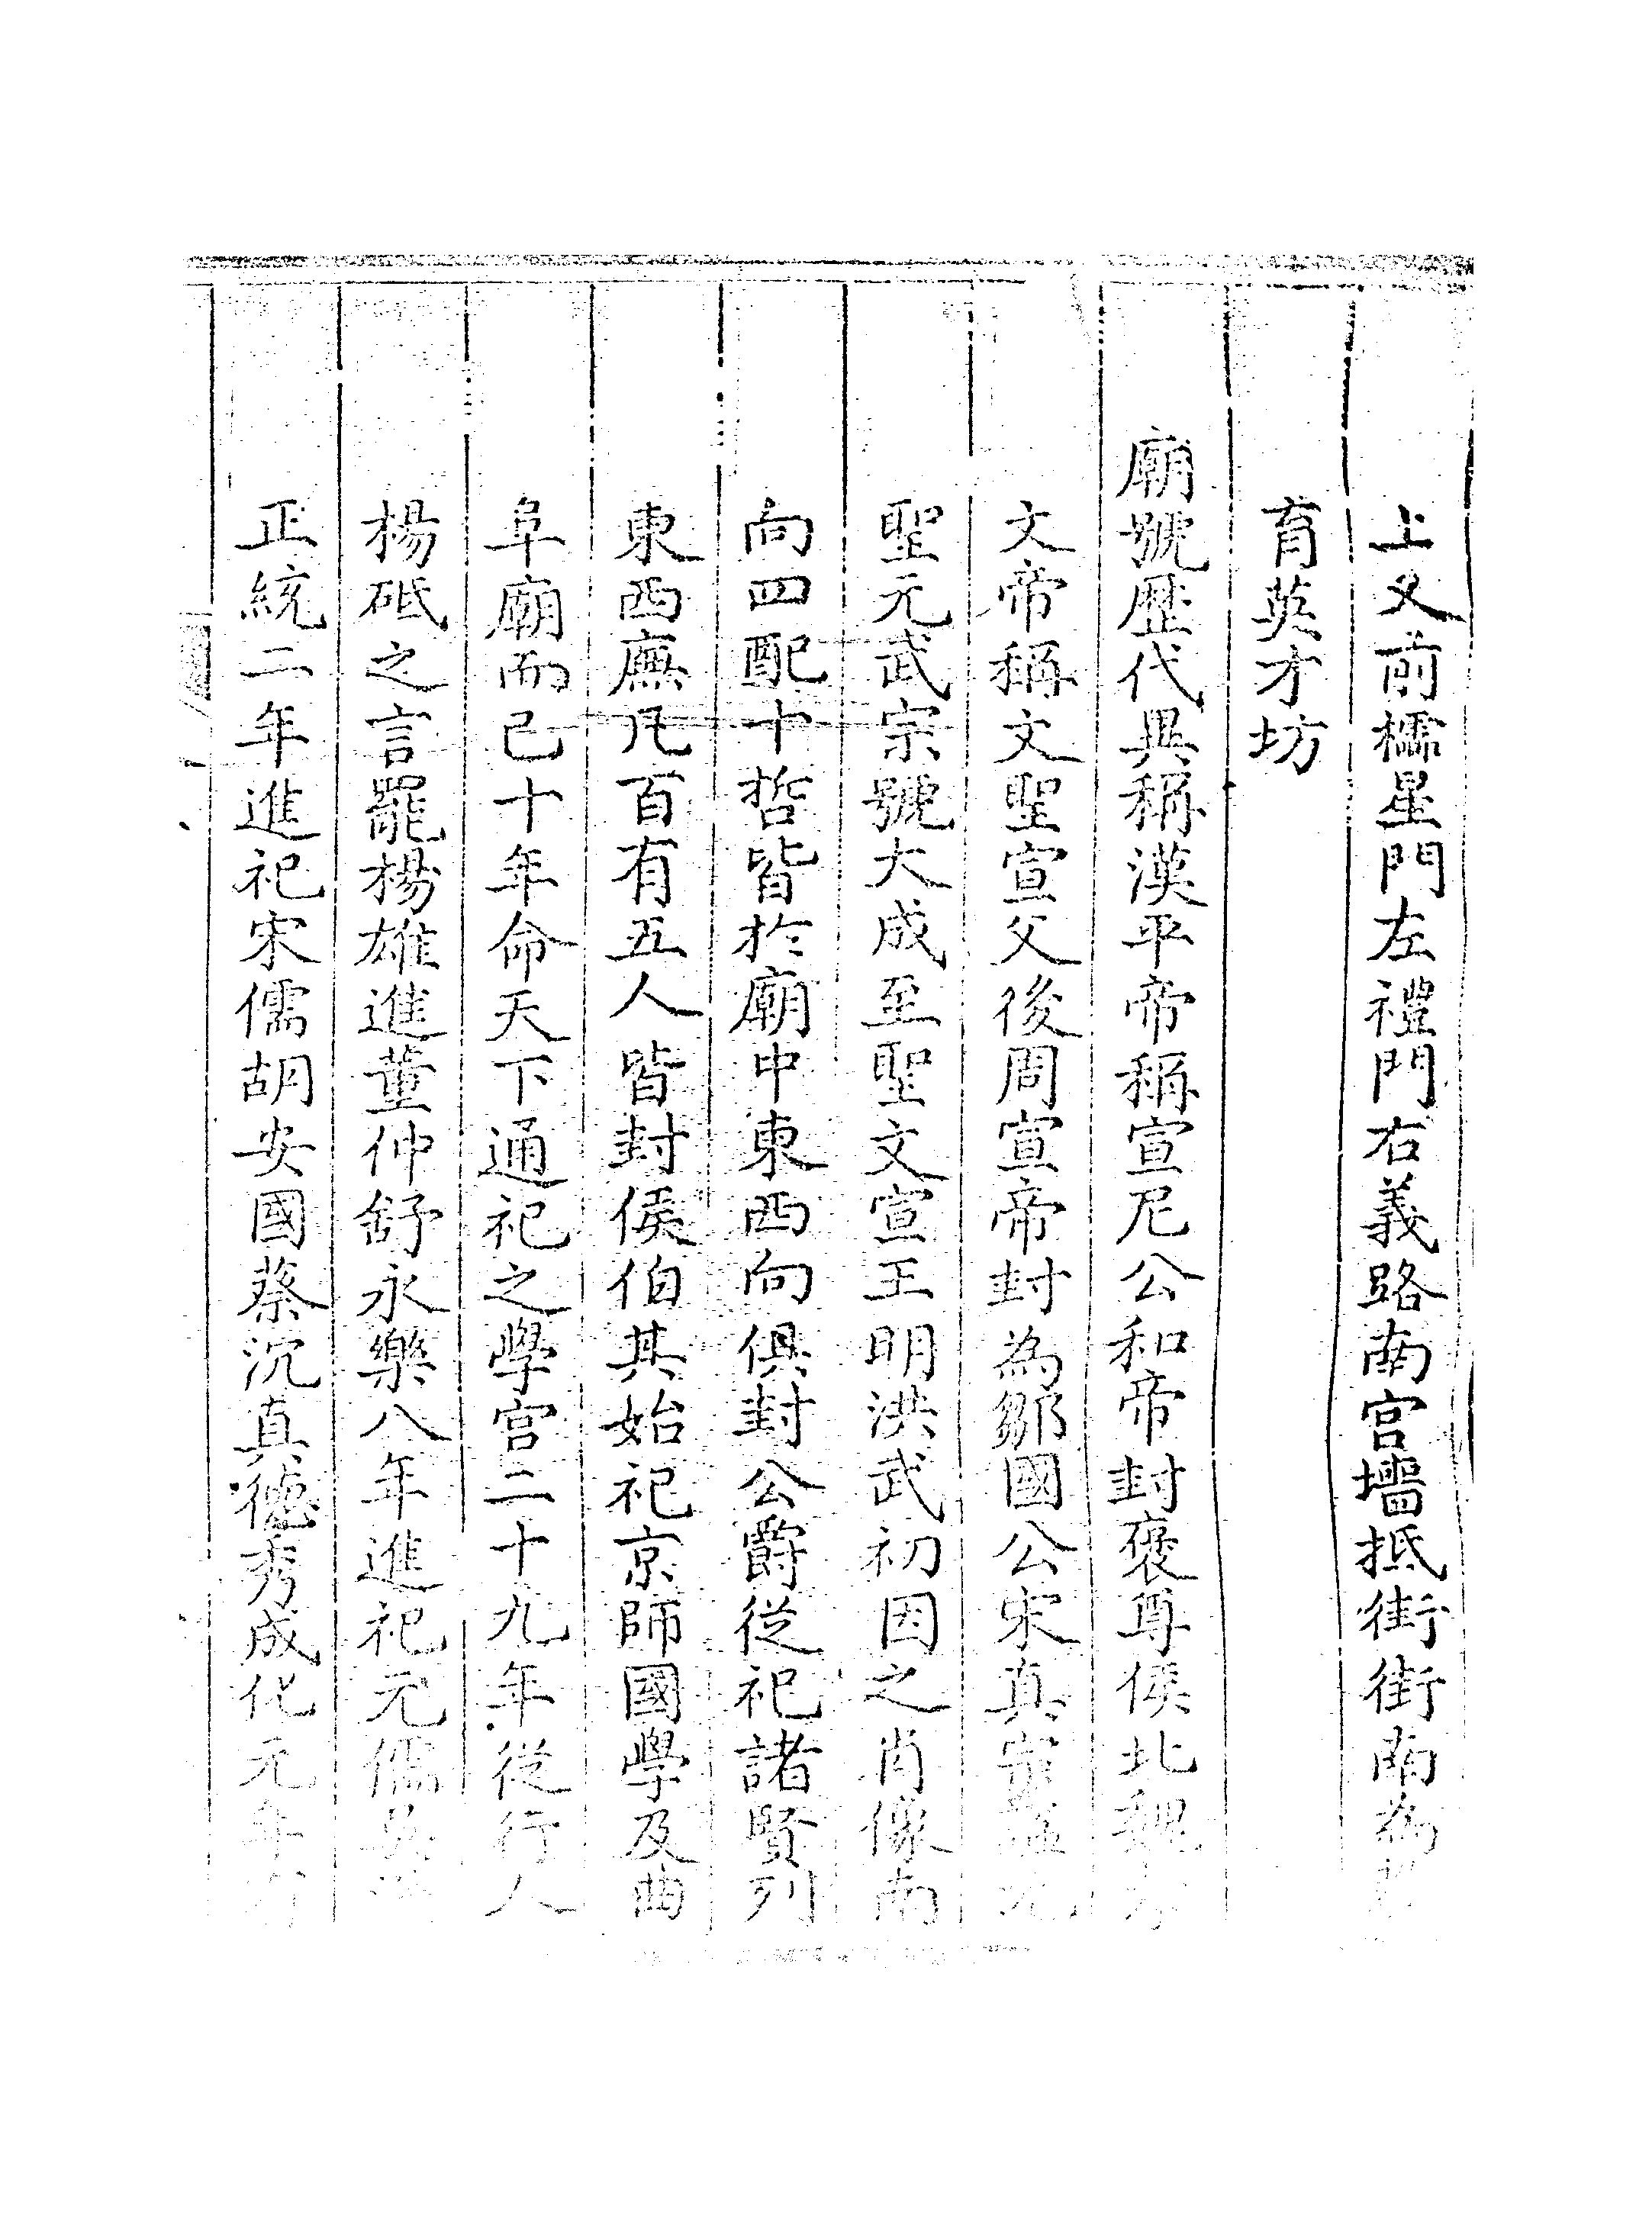 上又前櫺星門左禮門右義路南宮墻抵街街南為
育英才坊
廟號歷代異稱漢平帝稱宣尼公和帝封褒尊侯北魏孝
文帝稱文聖宣父後周宣帝封為鄒國公宋真宗謚元
聖元武宗號大成至聖文宣王明洪武初因之肖像南
向四配十哲皆於廟中東西向俱封公爵從祀諸賢列
東西廡凡百有五人皆封侯伯其始祀京師國學及曲
阜廟而已十年命天下通祀之學宮二十九年從行人
楊砥之言罷楊雄進董仲舒永樂八年進祀元儒吳
正統二年進祀宋儒胡安國蔡沉真德秀成化元年